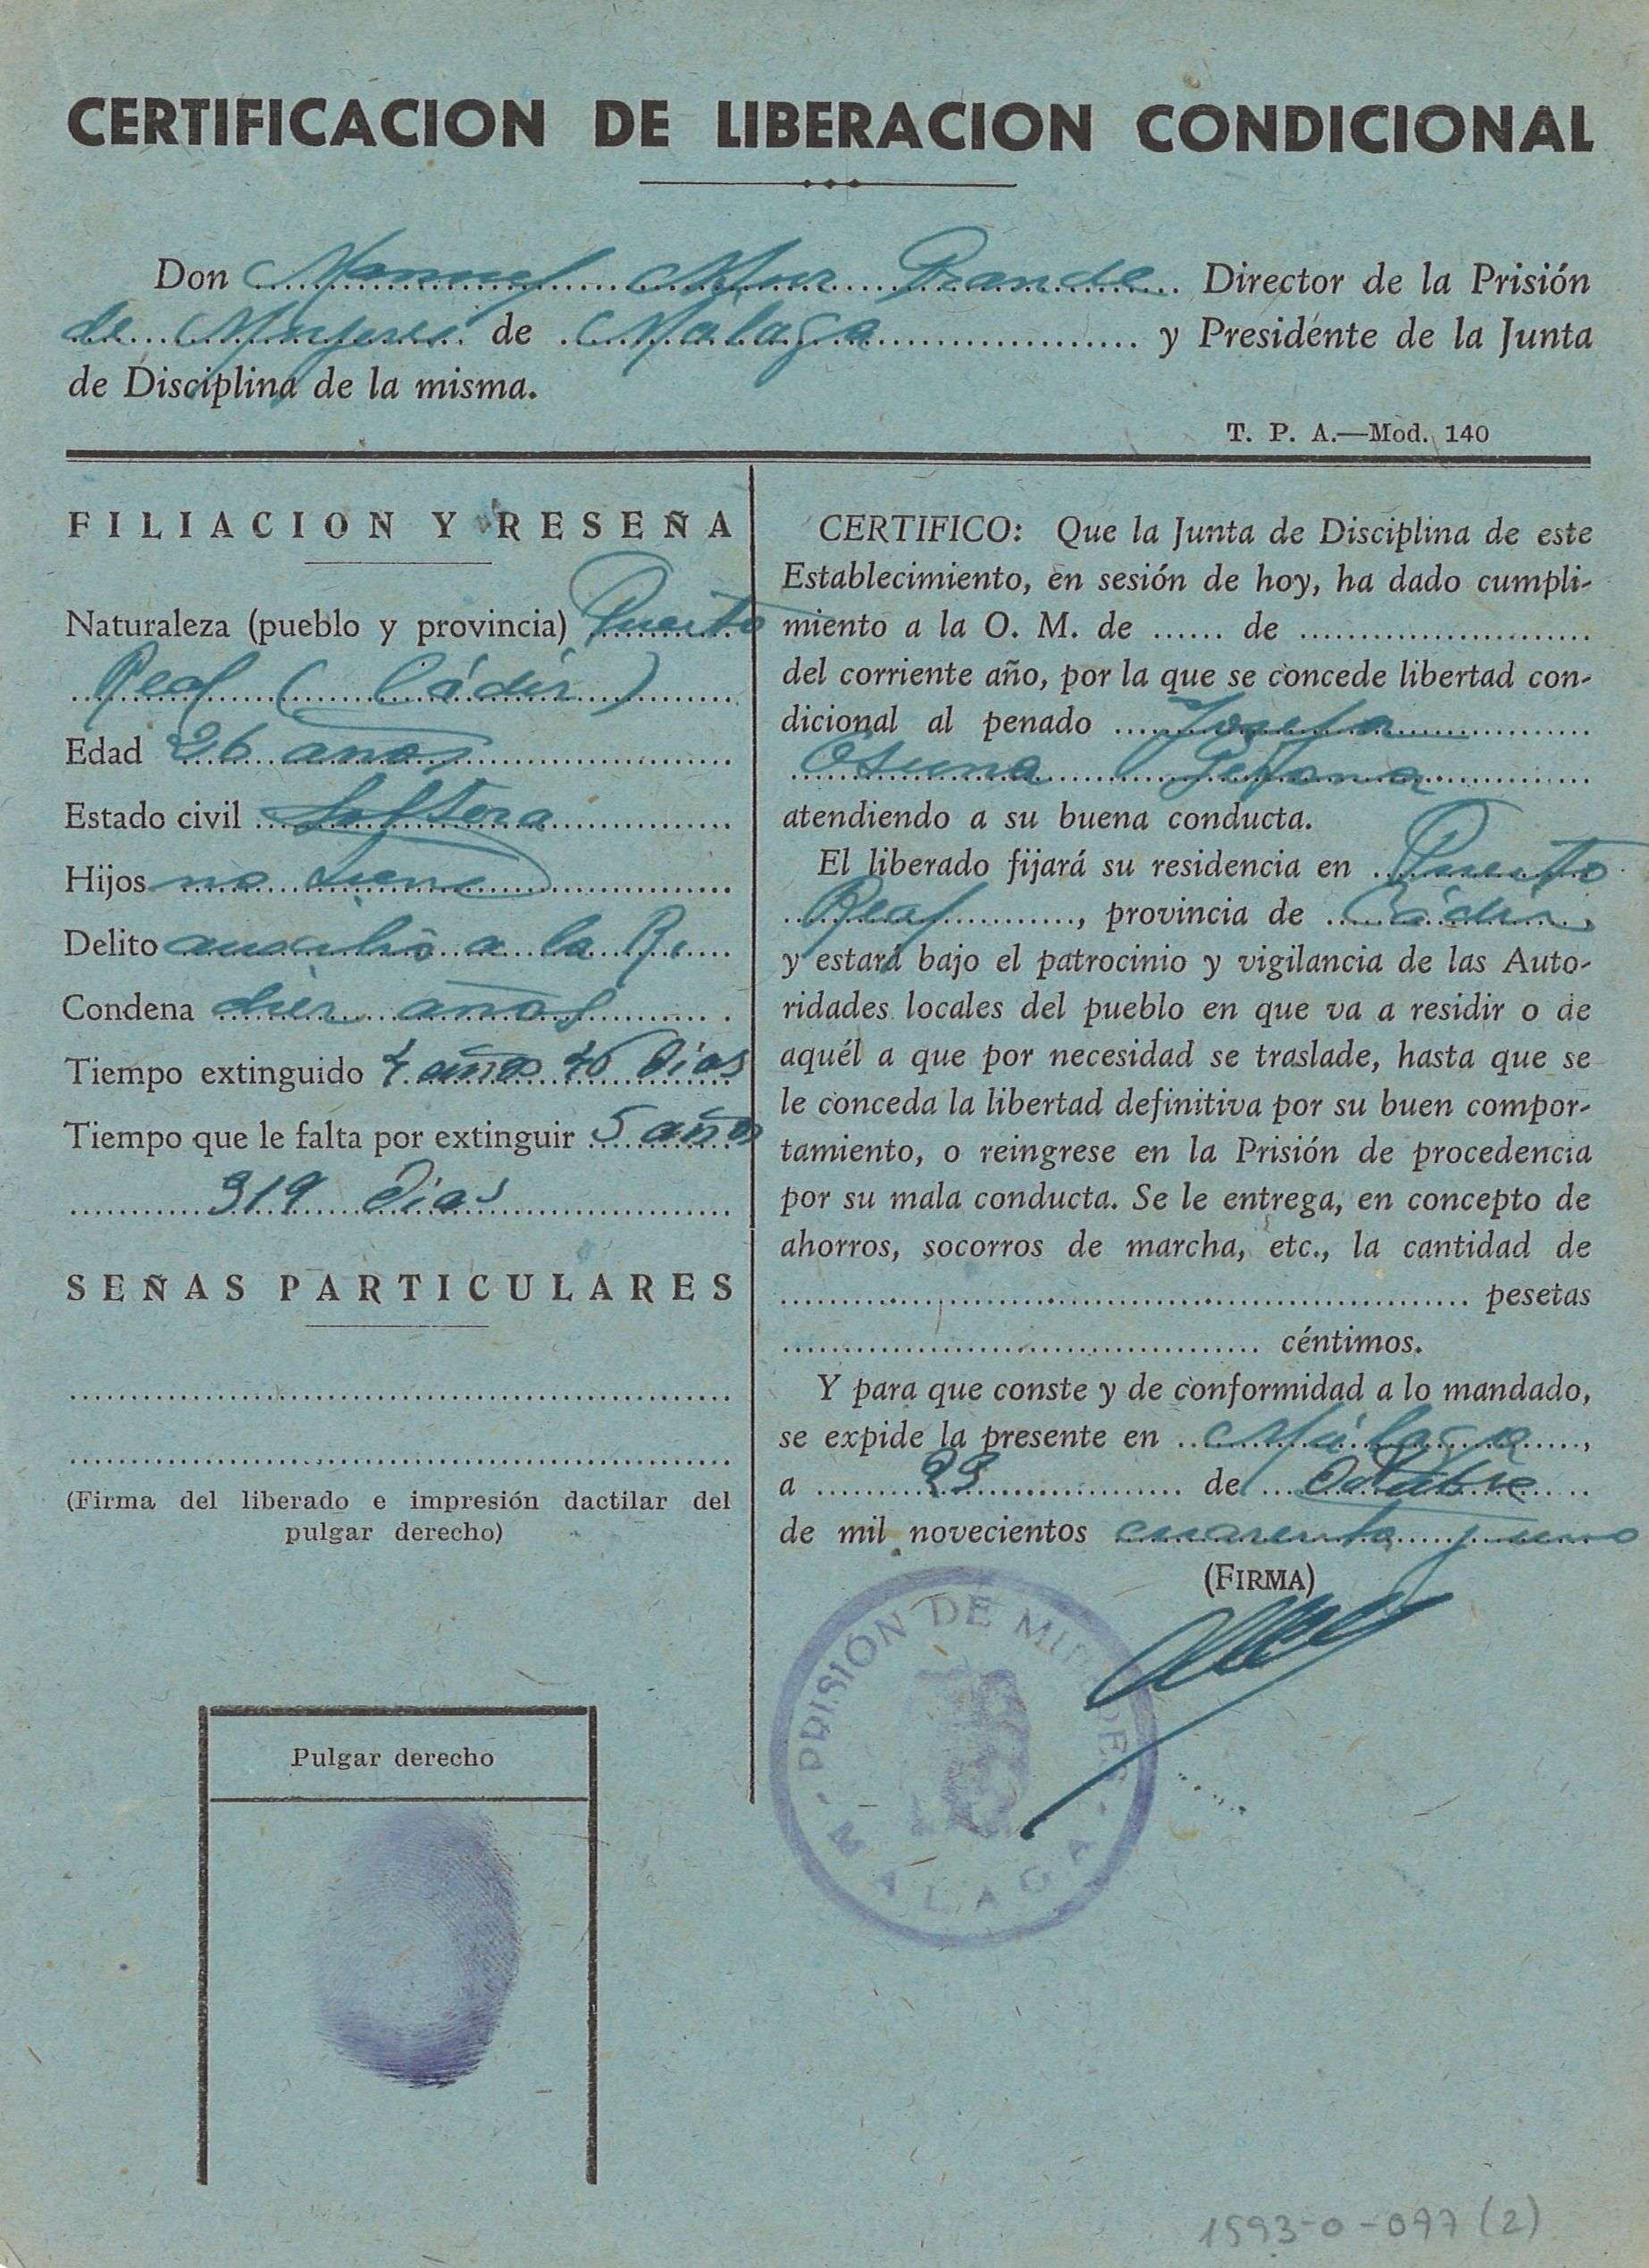 CERTIFICACION DE LIBERACION CONDICIONAL
Don Manuel Mur Director de la Prisión
de Mujeres de Málaga y Presidente de la Junta
de Disciplina de la misma.
T. P. A.—Mod. 140
FILIACION Y RESEÑA
Naturaleza (pueblo y provincia) Puerto
Real (Cádiz)
Edad 26 años
Estado civil Soltera
Hijos no tiene
Delito auxilio a la R.
Condena diez años
Tiempo extinguido 4 años 46 Dias
Tiempo que le falta por extinguir 5 años
319 Dias
SEÑAS PARTICULARES
(Firma del liberado e impresión dactilar del
pulgar derecho)
Pulgar derecho
CERTIFICO: Que la Junta de Disciplina de este
Establecimiento, en sesión de hoy, ha dado cumpli-
miento a la O. M. de ...... de ........................
del corriente año, por la que se concede libertad con-
dicional al penado Josefa
Osuna
atendiendo a su buena conducta.
El liberado fijará su residencia en Puerto
Real, provincia de Cádiz,
y estará bajo el patrocinio y vigilancia de las Auto-
ridades locales del pueblo en que va a residir o de
aquél a que por necesidad se traslade, hasta que se
le conceda la libertad definitiva por su buen compor-
tamiento, o reingrese en la Prisión de procedencia
por su mala conducta. Se le entrega, en concepto de
ahorros, socorros de marcha, etc., la cantidad de
pesetas
céntimos.
Y para que conste y de conformidad a lo mandado,
se expide la presente en Málaga,
a 23 de Octubre
de mil novecientos cuarenta y uno
(FIRMA)
PRISIÓN DE MUJERES
MALAGA
1593-0-097 (2)